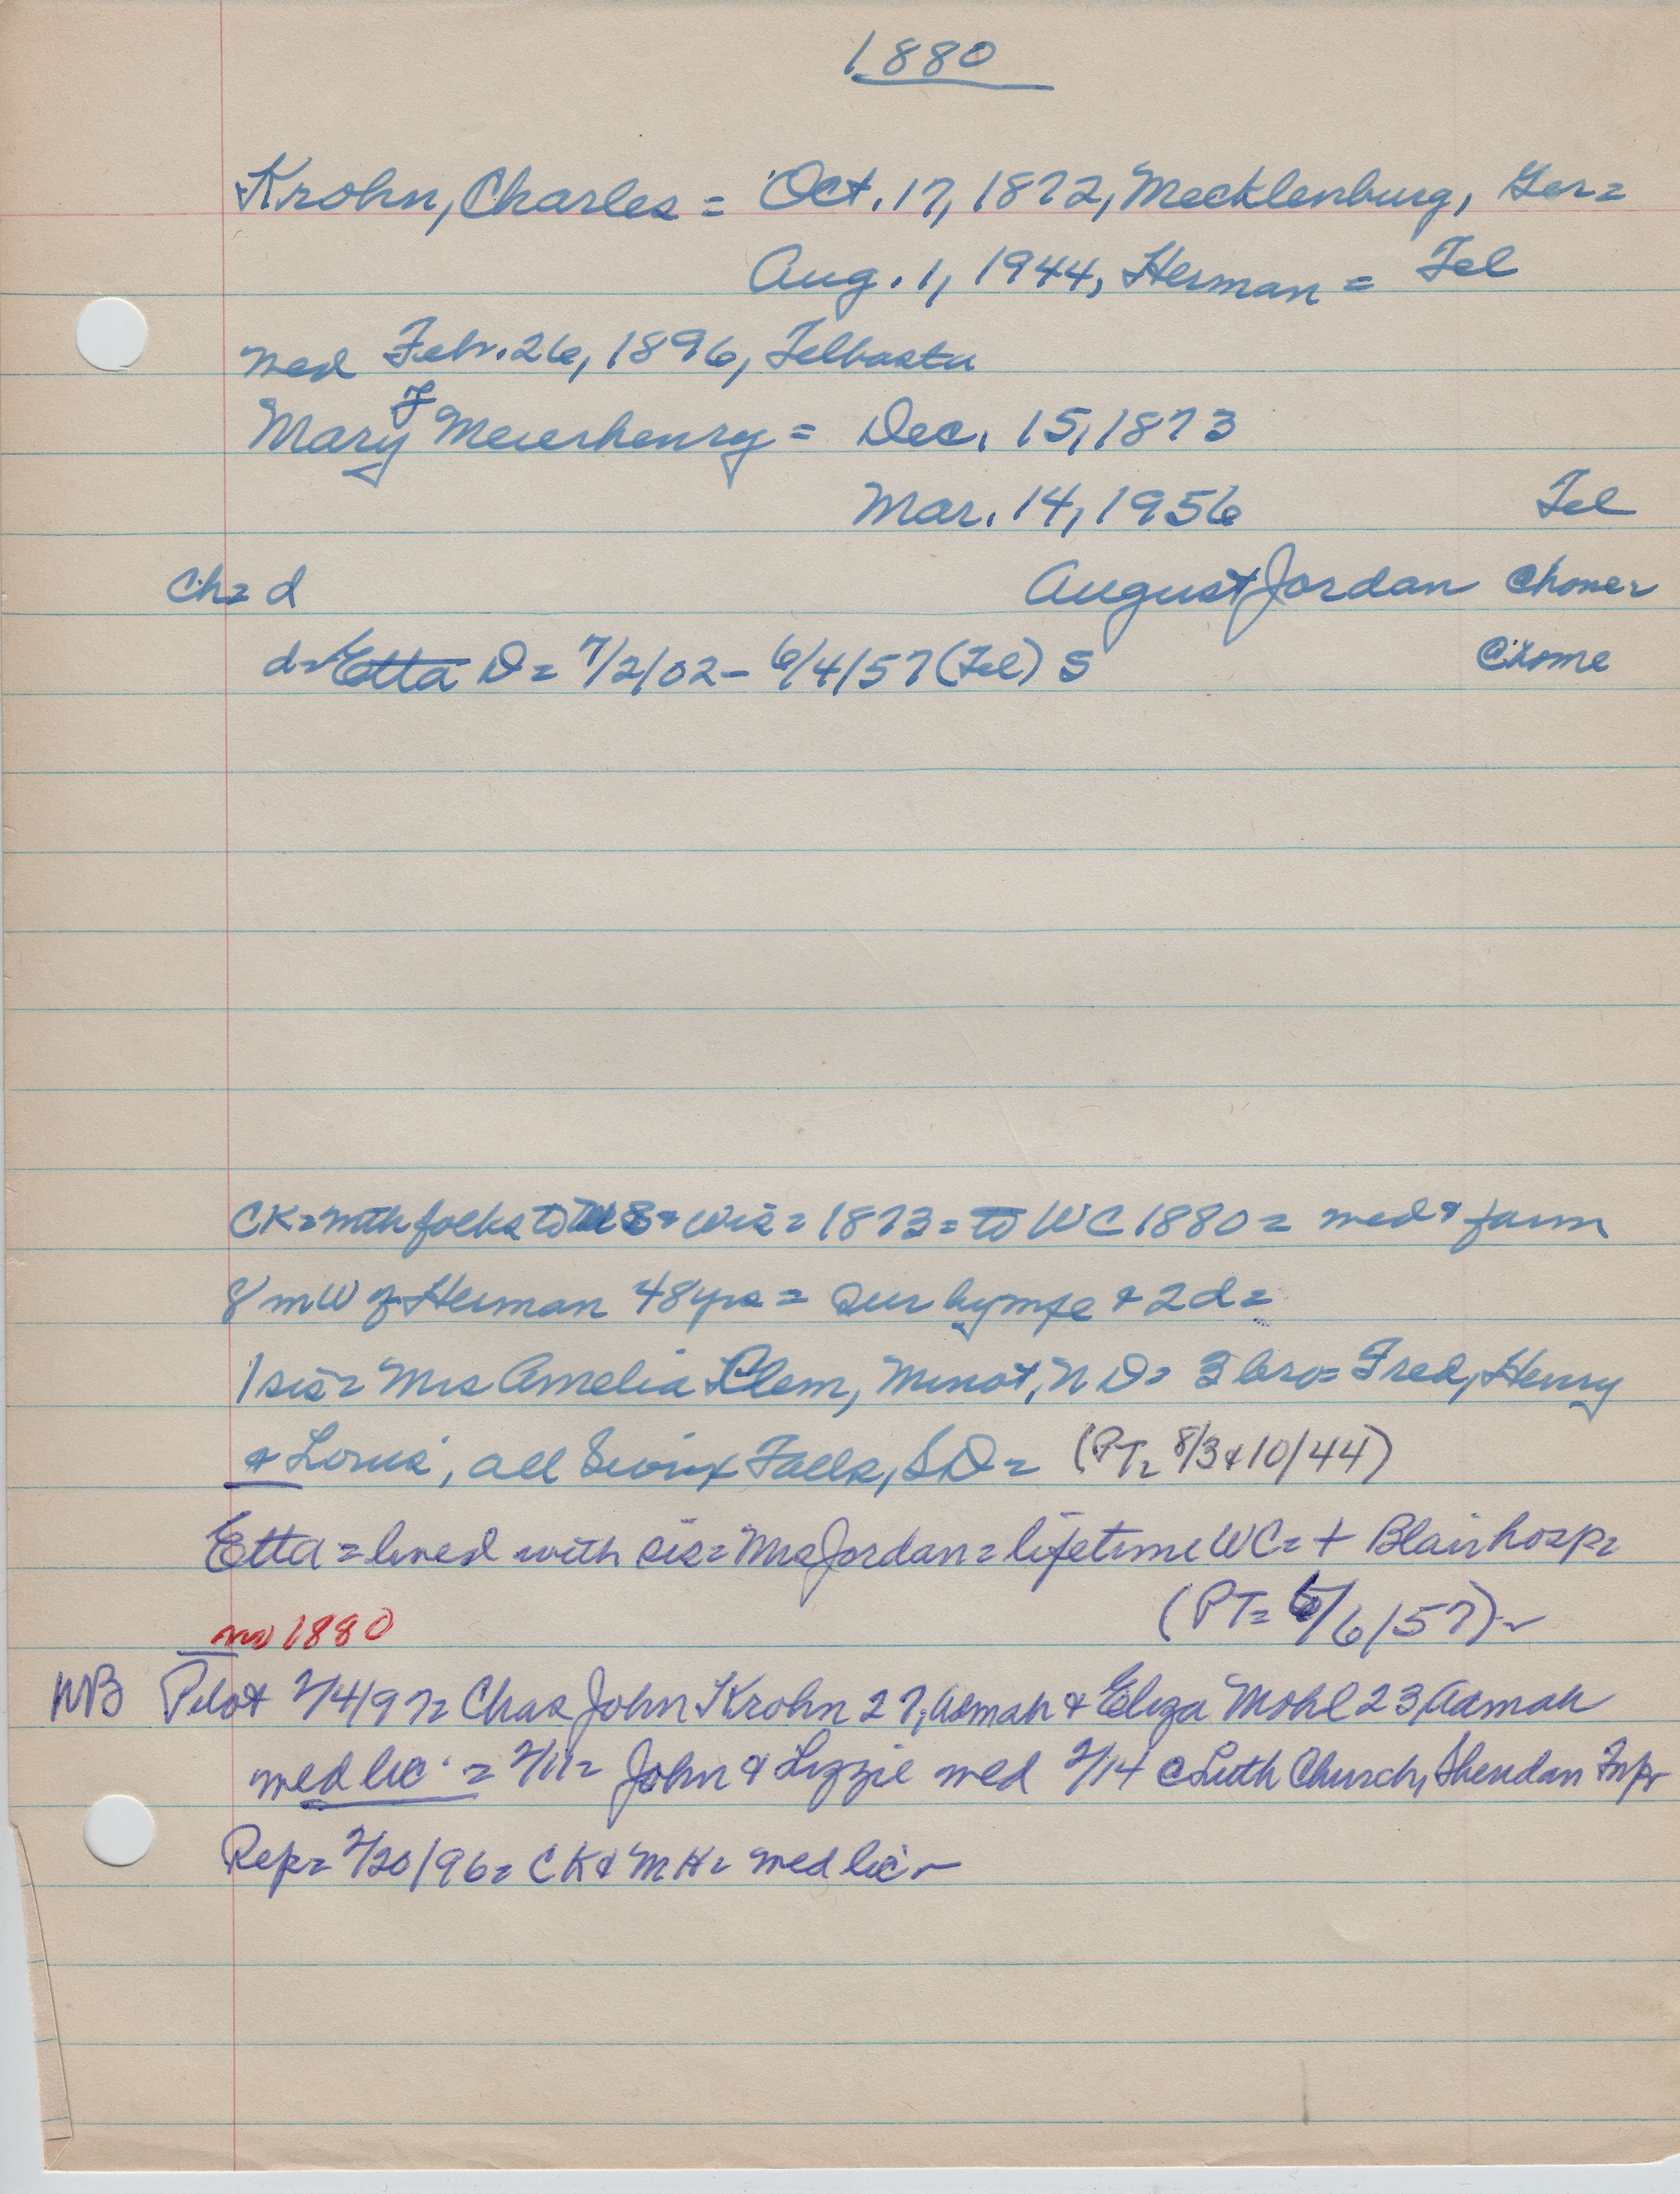 1880
Krohn, Charles = Oct. 17, 1872, Mecklenburg, Ger =
Aug. 1, 1944, Herman = Tel
med Febr. 26, 1896, Telbasta
Mary F Meierhenry = Dec. 15, 1873
Mar. 14, 1956 Tel
Ch = d August Jordan @home =
d = Etta D = 7/2/02 - 6/4/57 (Tel) S @home
CK = with folks to US = Wis = 1873 = to WC 1880 = med & farm
8 m W of Herman 48 yrs = sur by mfe & 2d =
1 sis = Mrs Amelia Klem, Minot, ND = 3 bro = Fred, Henry
& Louis, all Sioux Falls, SD = (PT = 8/3 & 10/44)
Etta = lived with sis = Mrs Jordan = lifetime WC = + Blair hosp =
(PT = 6/6/57) ~
no 1880
NB Pilot 2/4/97 = Chas John Krohn 27, Admah & Eliza Mohl 23, Admah
med lic = 2/11 = John & Lizzie med 2/14 @ Luth Church, Sheridan Twp
Rep = 2/20/96 = CK & MH = med lic ~